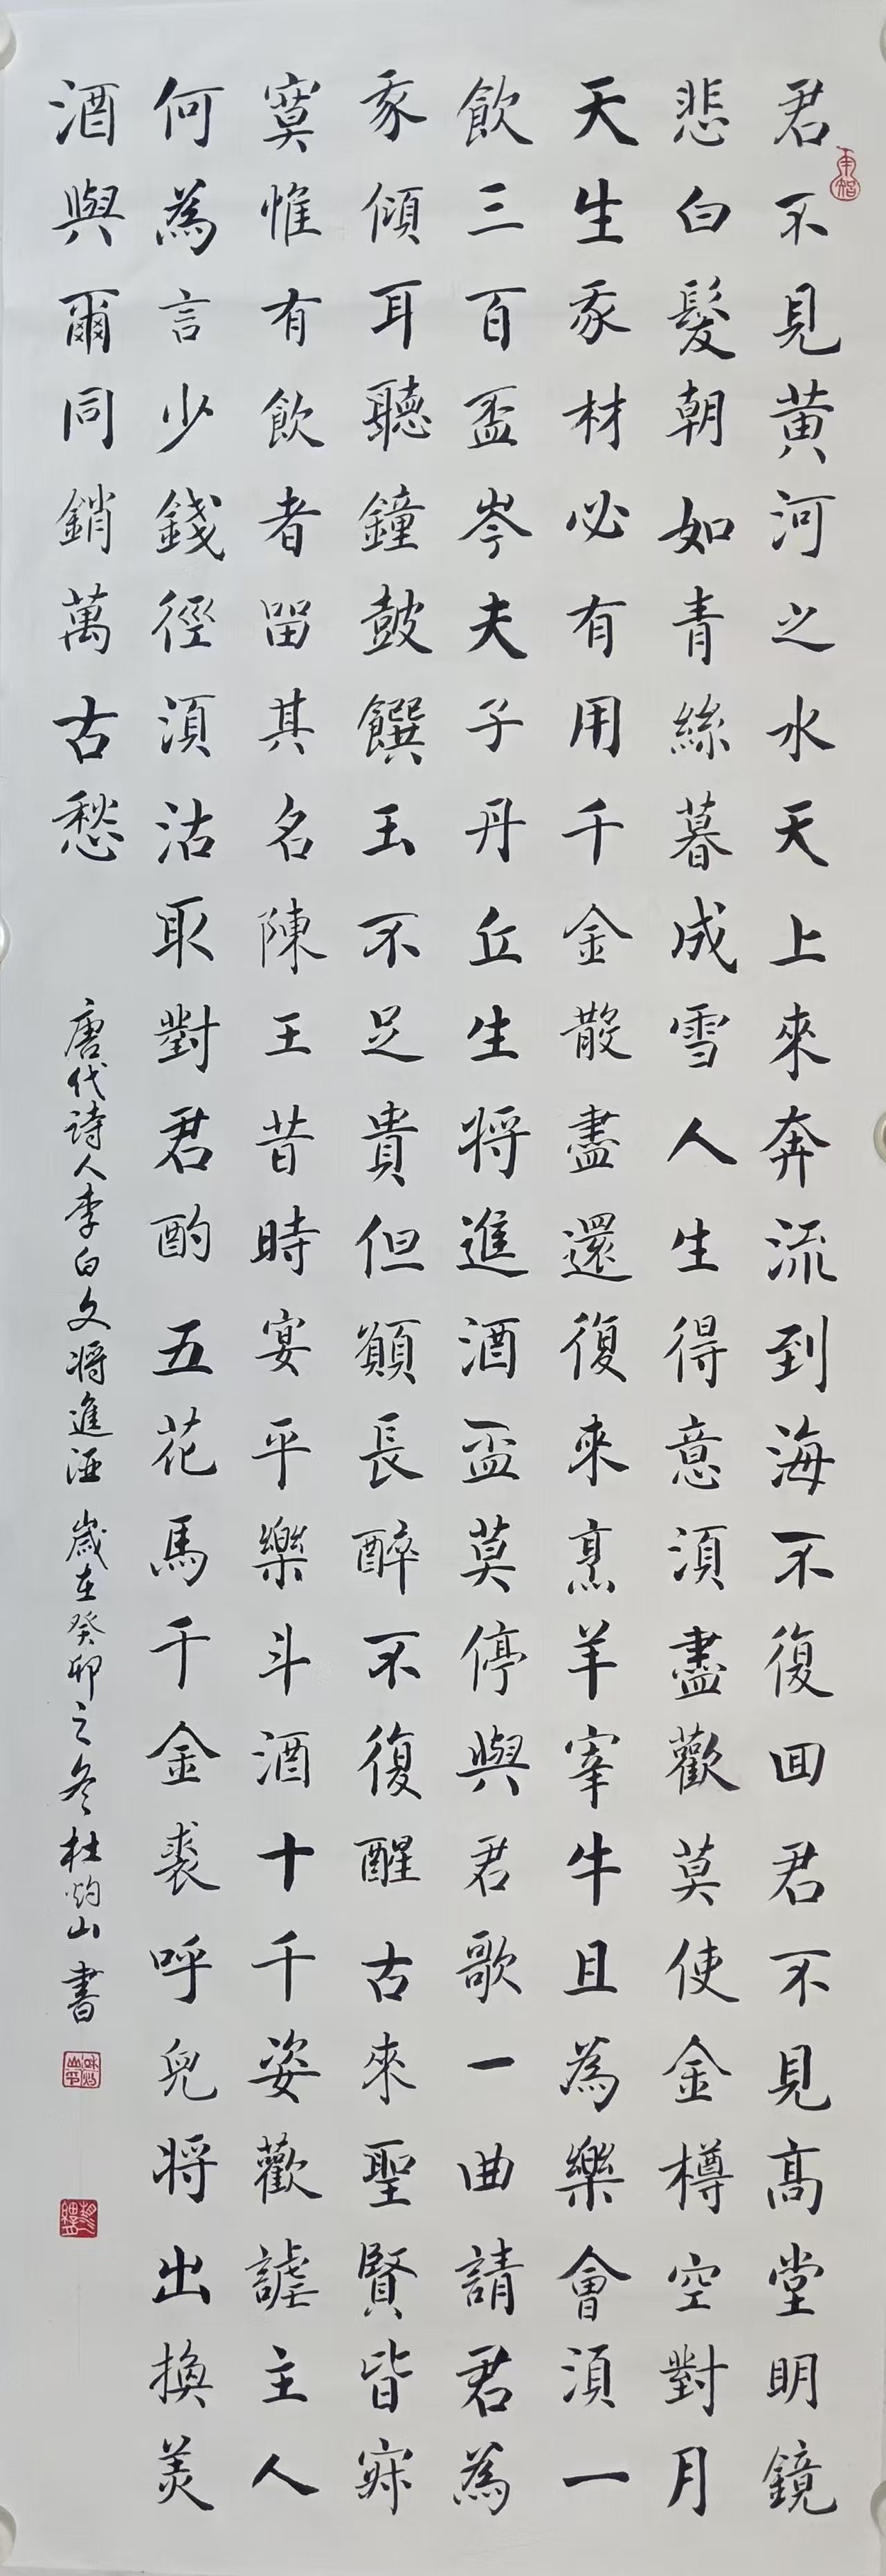 君不見黃河之水天上來奔流到海不復回君不見高堂明鏡
悲白髮朝如青絲暮成雪人生得意須盡歡莫使金樽空對月
天生我材必有用千金散盡還復來烹羊宰牛且為樂會須一
飲三百盃岑夫子丹丘生將進酒盃莫停與君歌一曲請君為
我傾耳聽鐘鼓饌玉不足貴但願長醉不復醒古來聖賢皆寂
寞惟有飲者留其名陳王昔時宴平樂斗酒十千姿歡謔主人
何為言少錢徑須沽取對君酌五花馬千金裘呼兒將出換美
酒與爾同銷萬古愁
唐代詩人李白文將進酒 歲在癸卯之冬杜灼山書